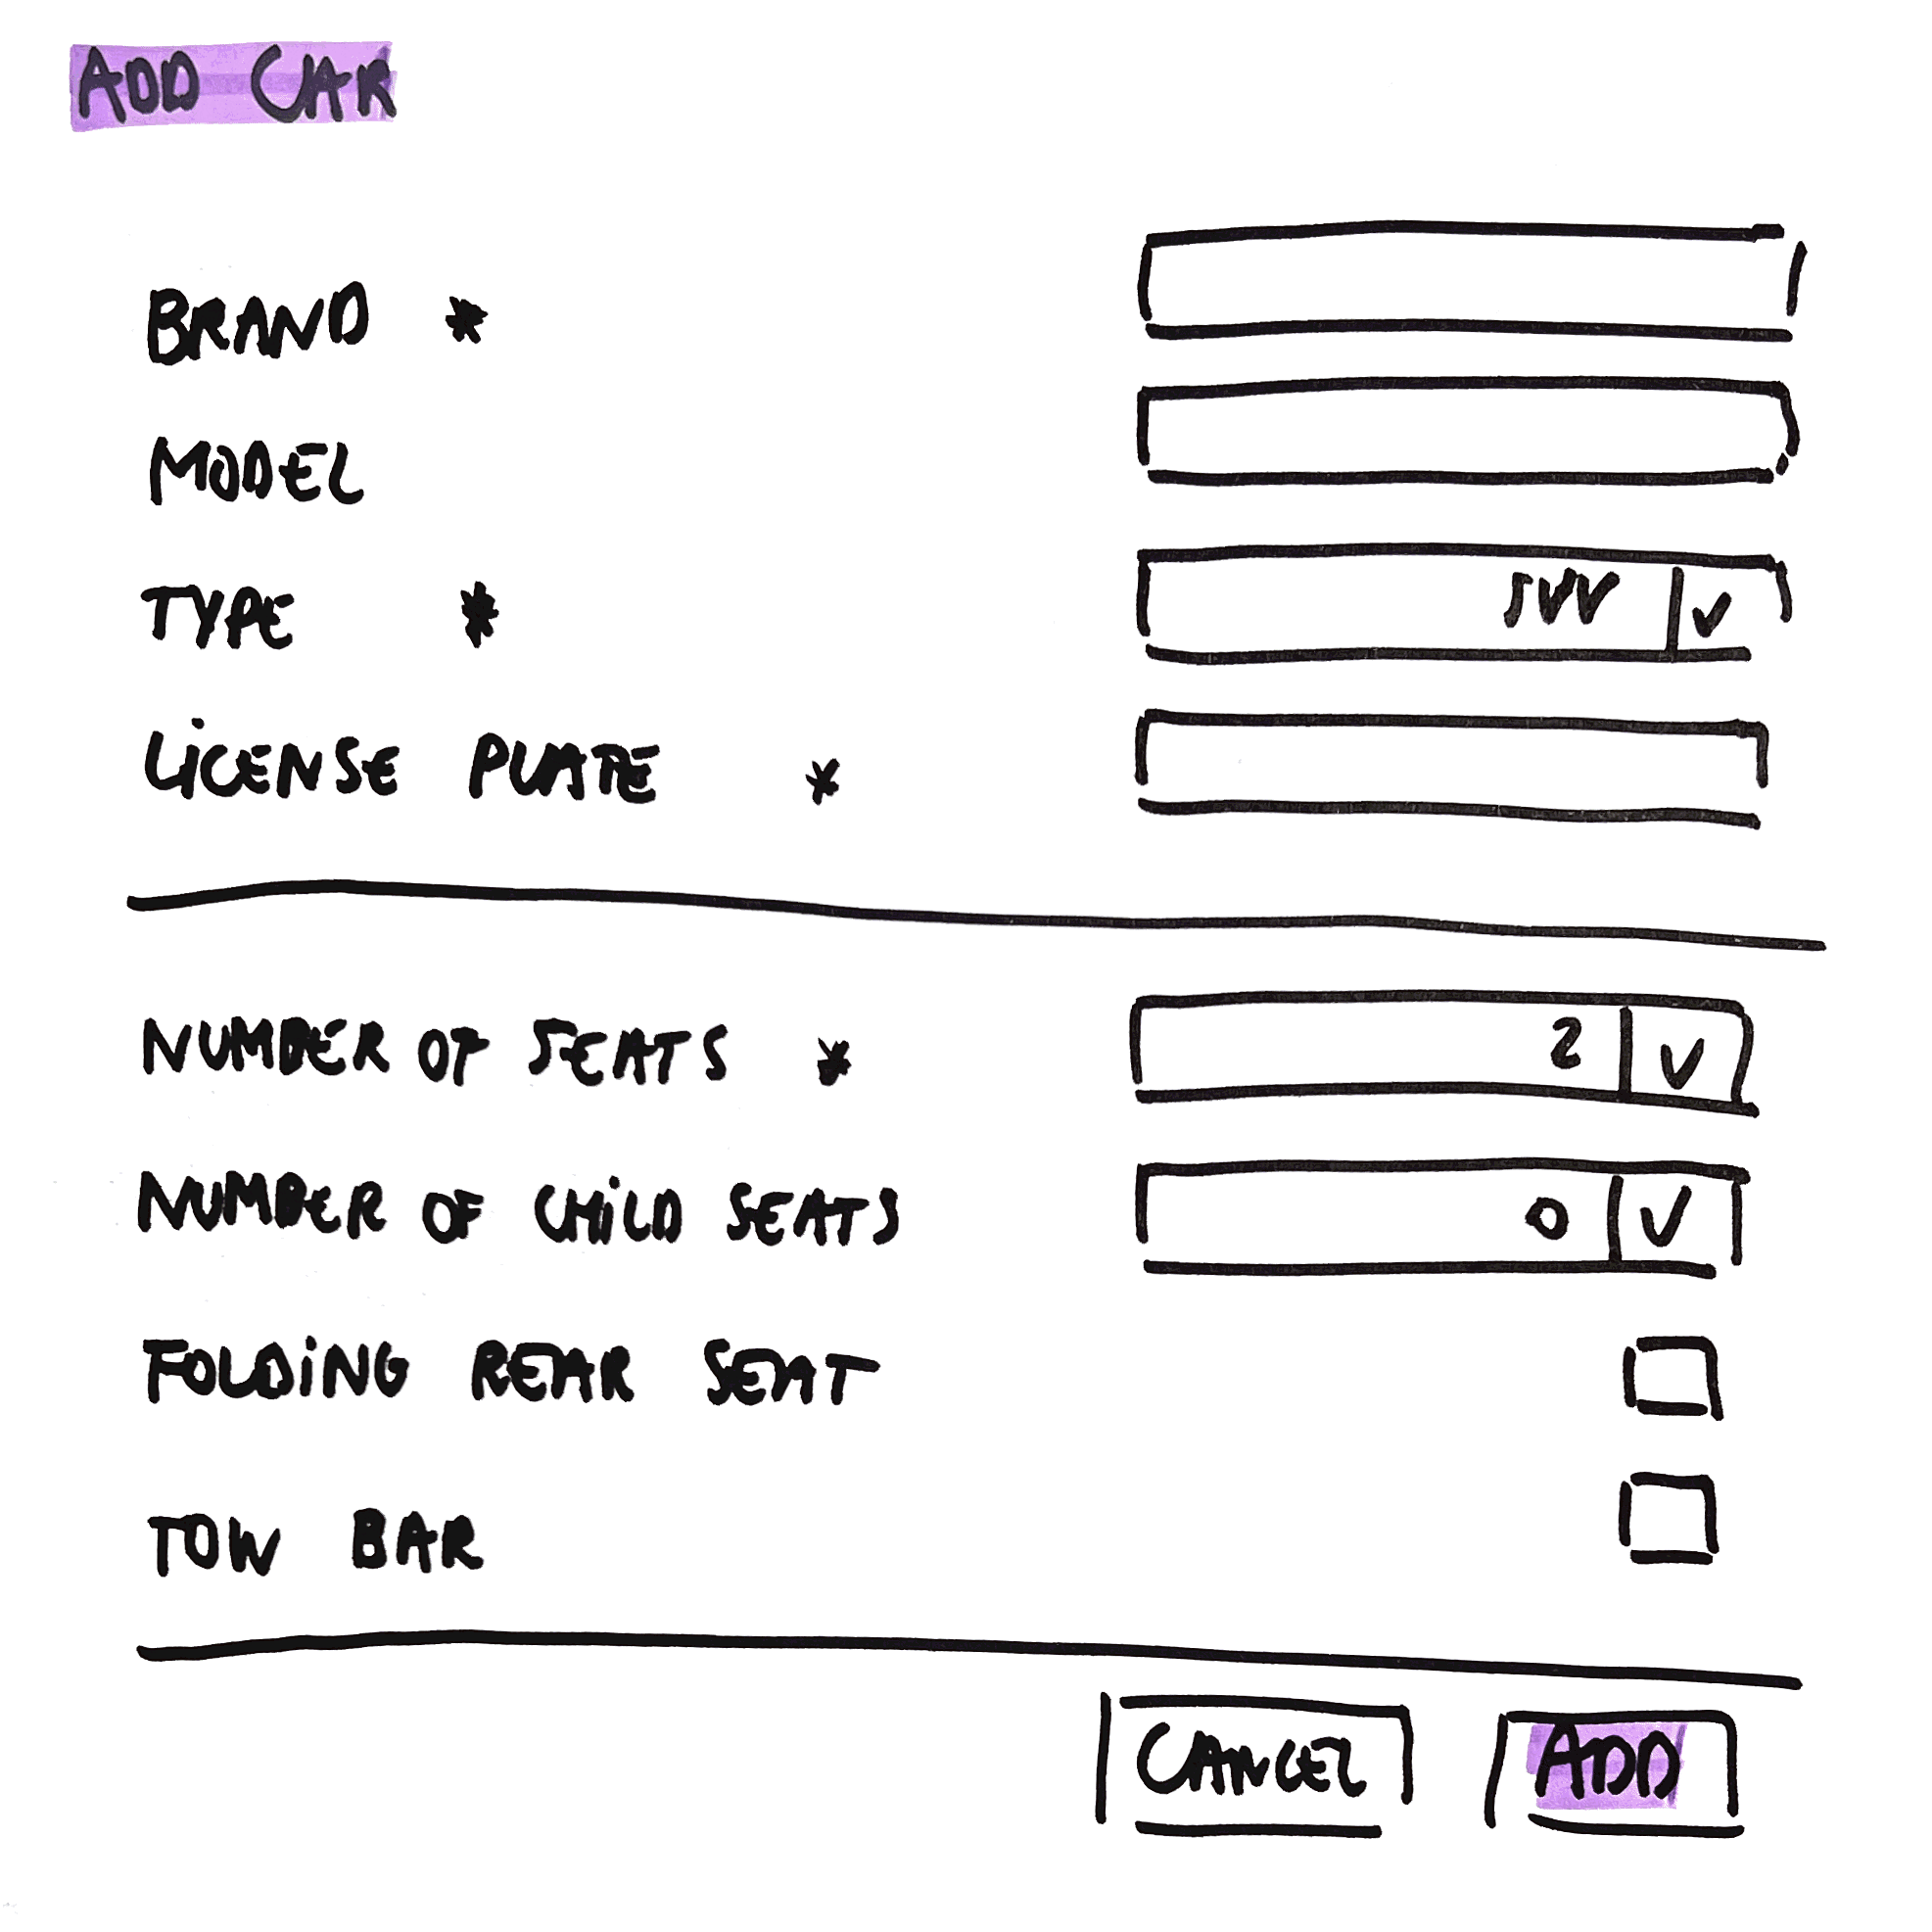 ADD CAR
BRAND *
MODEL
TYPE * SUV
LICENSE PLATE *
NUMBER OF SEATS * 2
NUMBER OF CHILD SEATS 0
FOLDING REAR SEAT
TOW BAR
CANCEL ADD